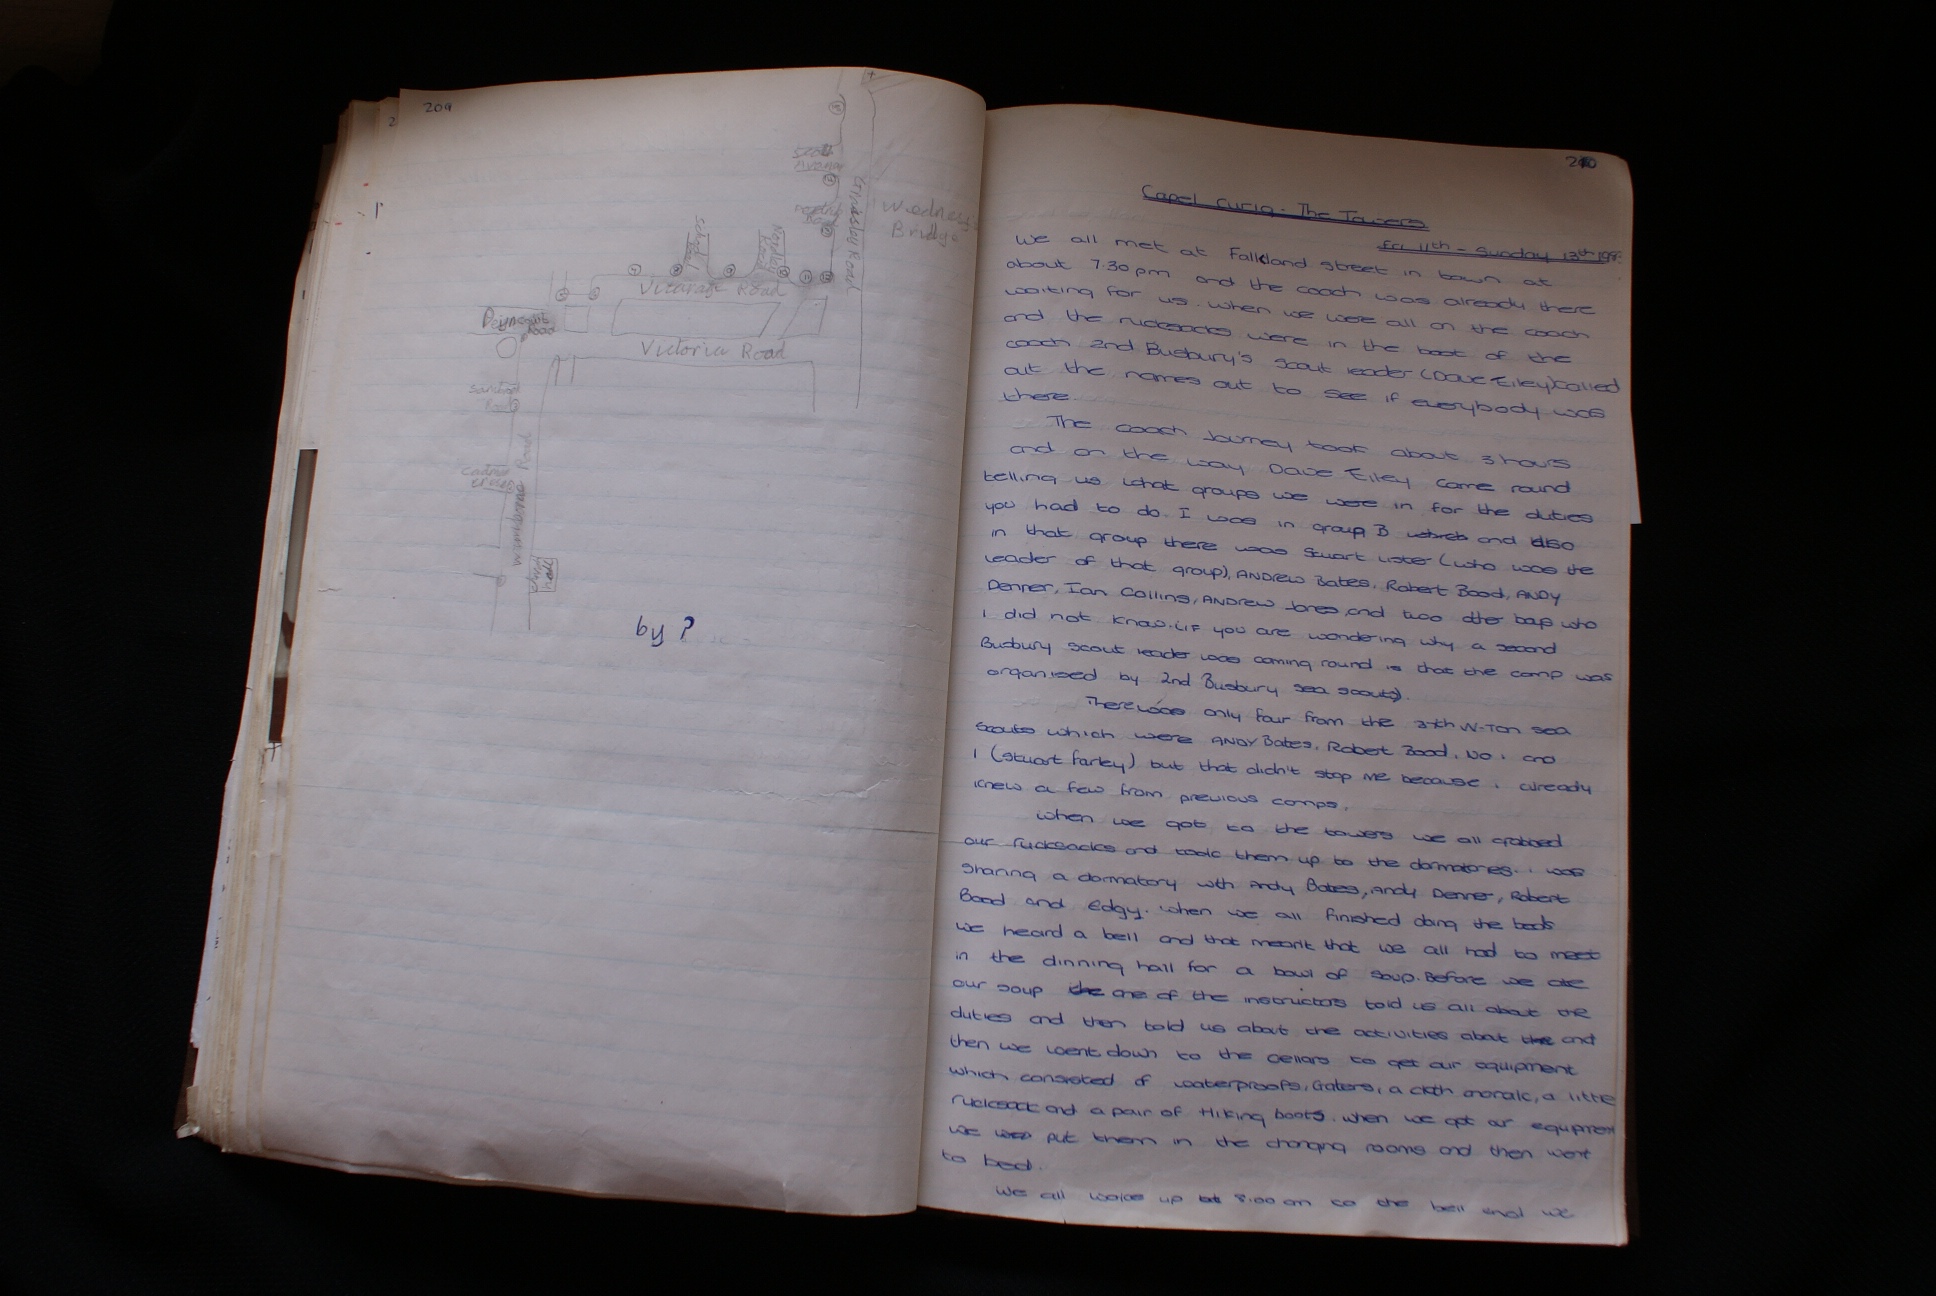 209
2
Scott
Avenue
Road
Wednes
Bridge
School
Road
Vicarage Road
Road
Victoria Road
Road
Road
hall
by ?
210
Capel Curig - The Towers
Fri 11th - Sunday 13th 198
We all met at Falkland street in town at
about 7.30pm and the coach was already there
waiting for us. when we were all on the coach
and the rucksacks were in the boot of the
coach 2nd Busbury's scout leader (Dave Eiley) called
out the names out to see if everybody was
there.
The coach Journey took about 3 hours
and on the way Dave Eiley came round
telling us what groups we were in for the duties
you had to do. I was in group B which and also
in that group there was Stuart Lister (who was the
leader of that group), ANDREW Bates, Robert Bood, ANDY
Denner, Ian Collins, ANDREW Jones, and two other boys who
i did not know. (if you are wondering why a second
Busbury scout leader was coming round is that the camp was
organised by 2nd Busbury sea scouts).
There was only four from the 37th W-Ton sea
scouts which were ANDY Bates, Robert Bood, No 1 and
I (Stuart Farley) but that didn't stop me because i already
knew a few from previous camps.
when we got to the towers we all grabbed
our rucksacks and took them up to the dormatories. i was
sharing a dormatory with Andy Bates, Andy Denner, Robert
Bood and Edgy. when we all finished doing the beds
we heard a bell and that meant that we all had to meet
in the dinning hall for a bowl of soup. Before we ate
our soup the one of the instructors told us all about the
duties and then told us about the activities about the and
then we went down to the cellars to get our equipment
which consisted of waterproofs, Gaters, a cloth anorak, a little
rucksack and a pair of Hiking boots. when we got our equipment
we was put them in the changing rooms and then went
to bed.
We all woke up at 8.00am to the bell and we